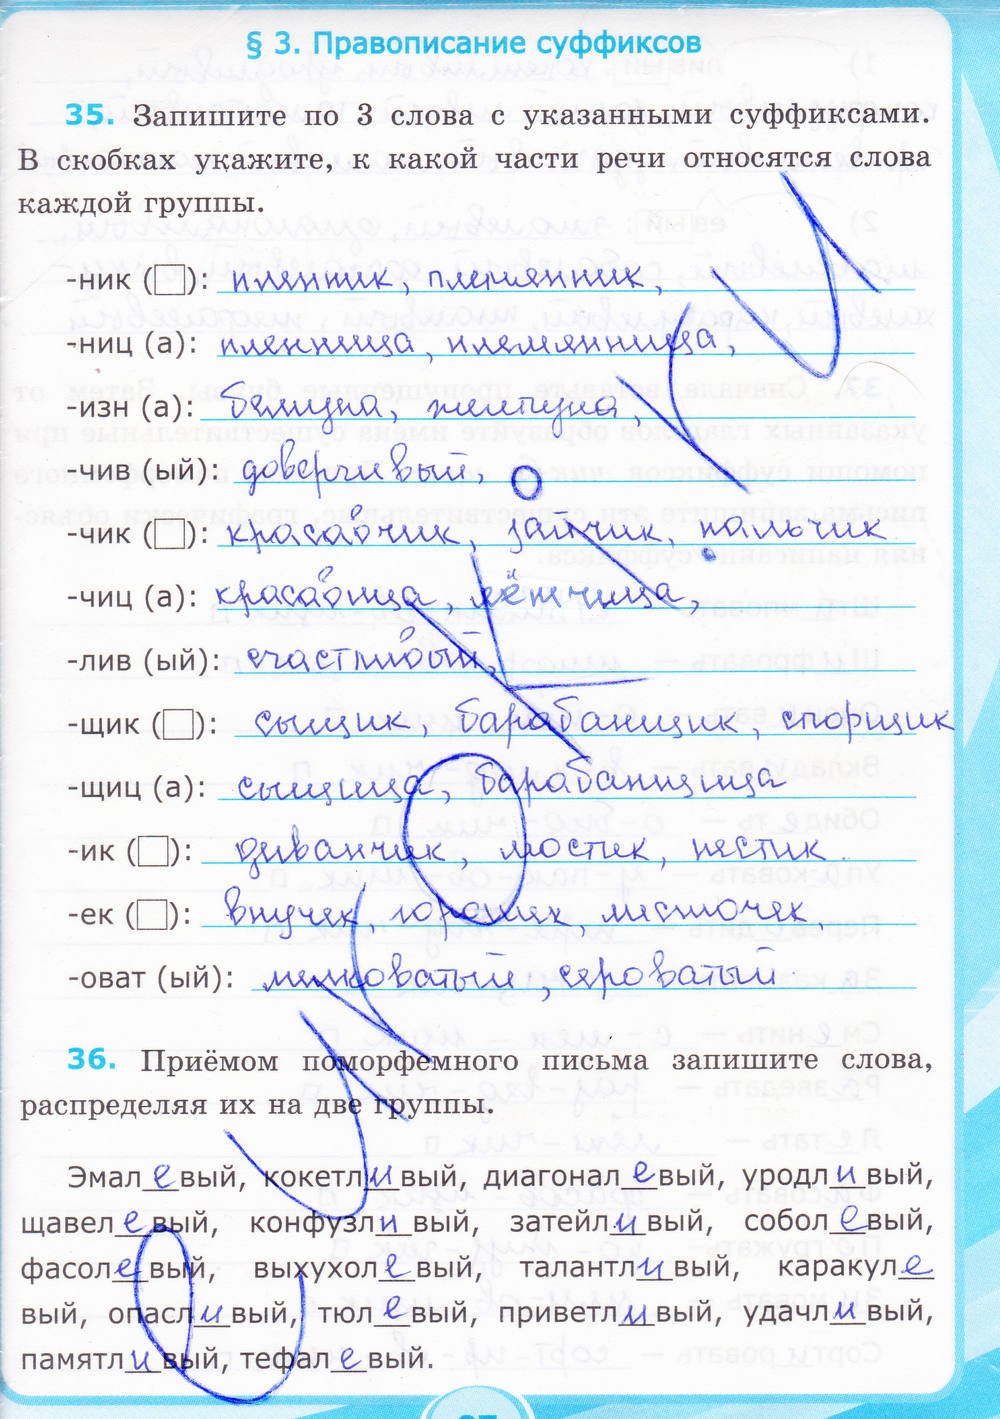 § 3. Правописание суффиксов
35. Запишите по 3 слова с указанными суффиксами.
В скобках укажите, к какой части речи относятся слова
каждой группы.
-ник (☐): пленник, племянник,
-ниц (а): пленница, племянница,
-изн (а): белизна, желтизна,
-чив (ый): доверчивый,
-чик (☐): красавчик, зайчик, пальчик
-чиц (а): красавица, лётчица,
-лив (ый): счастливый,
-щик (☐): сыщик, барабанщик, спорщик
-щиц (а): сыщица, барабанщица
-ик (☐): диванчик, мостик, пестик
-ек (☐): внучек, горошек, листочек
-оват (ый): мелковатый, сероватый.
36. Приёмом поморфемного письма запишите слова,
распределяя их на две группы.
Эмалевый, кокетливый, диагоналевый, уродливый,
щавелевый, конфузливый, затейливый, соболевый,
фасолевый, выхухолевый, талантливый, каракуле
вый, опасливый, тюлевый, приветливый, удачливый,
памятливый, тефалевый.